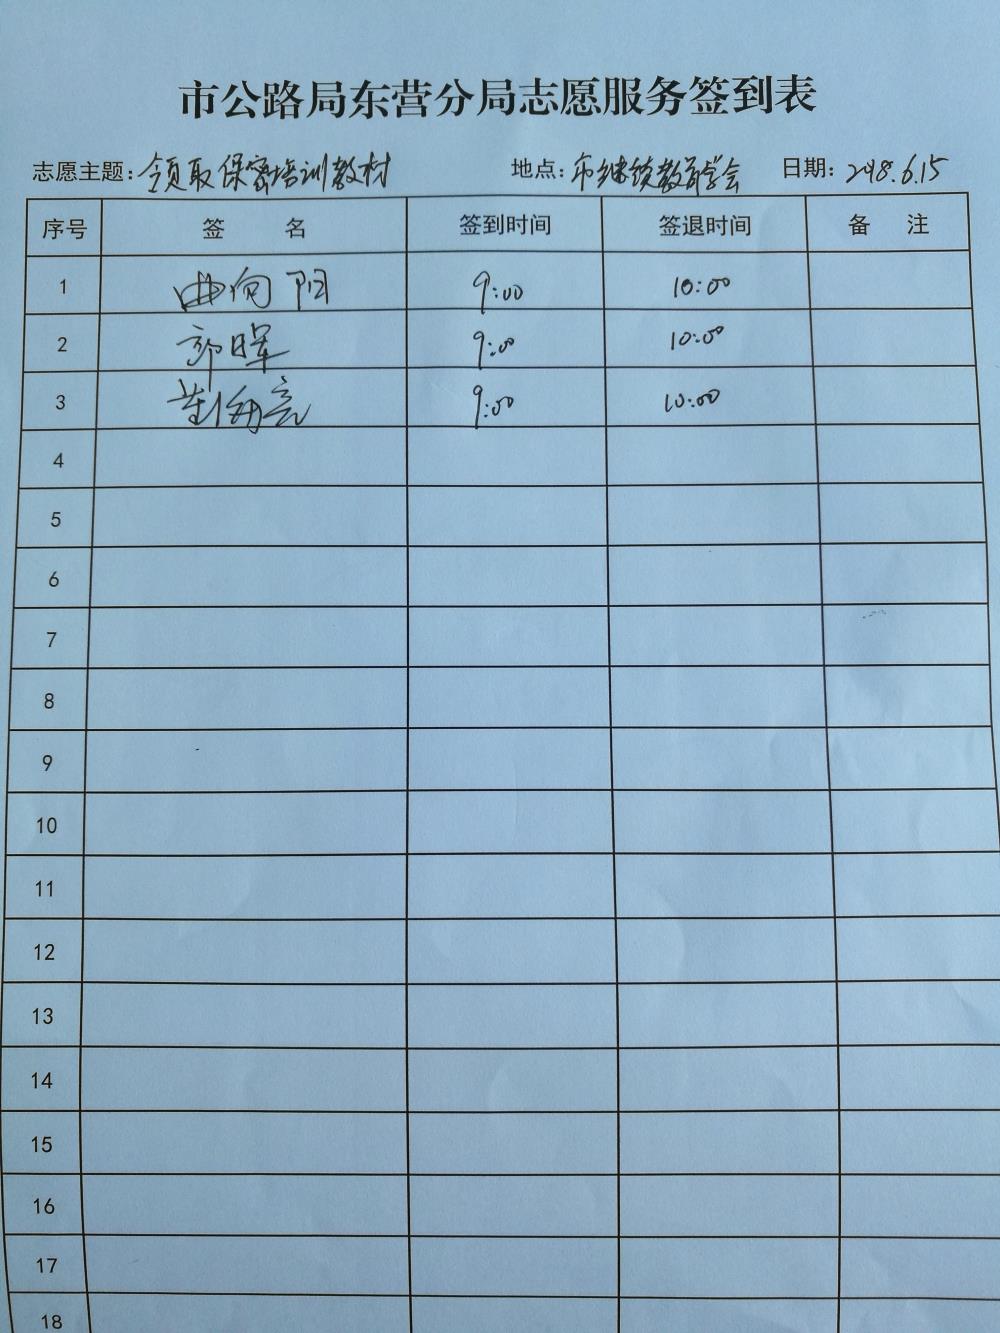 市公路局东营分局志愿服务签到表
志愿主题：领取保密培训教材 地点：市继续教育学会 日期：2018.6.15
序号 签 名 签到时间 签退时间 备 注
1 曲向阳 9:00 10:00
2 郭晖 9:00 10:00
3 9:00 10:00
4
5
6
7
8
9
10
11
12
13
14
15
16
17
18